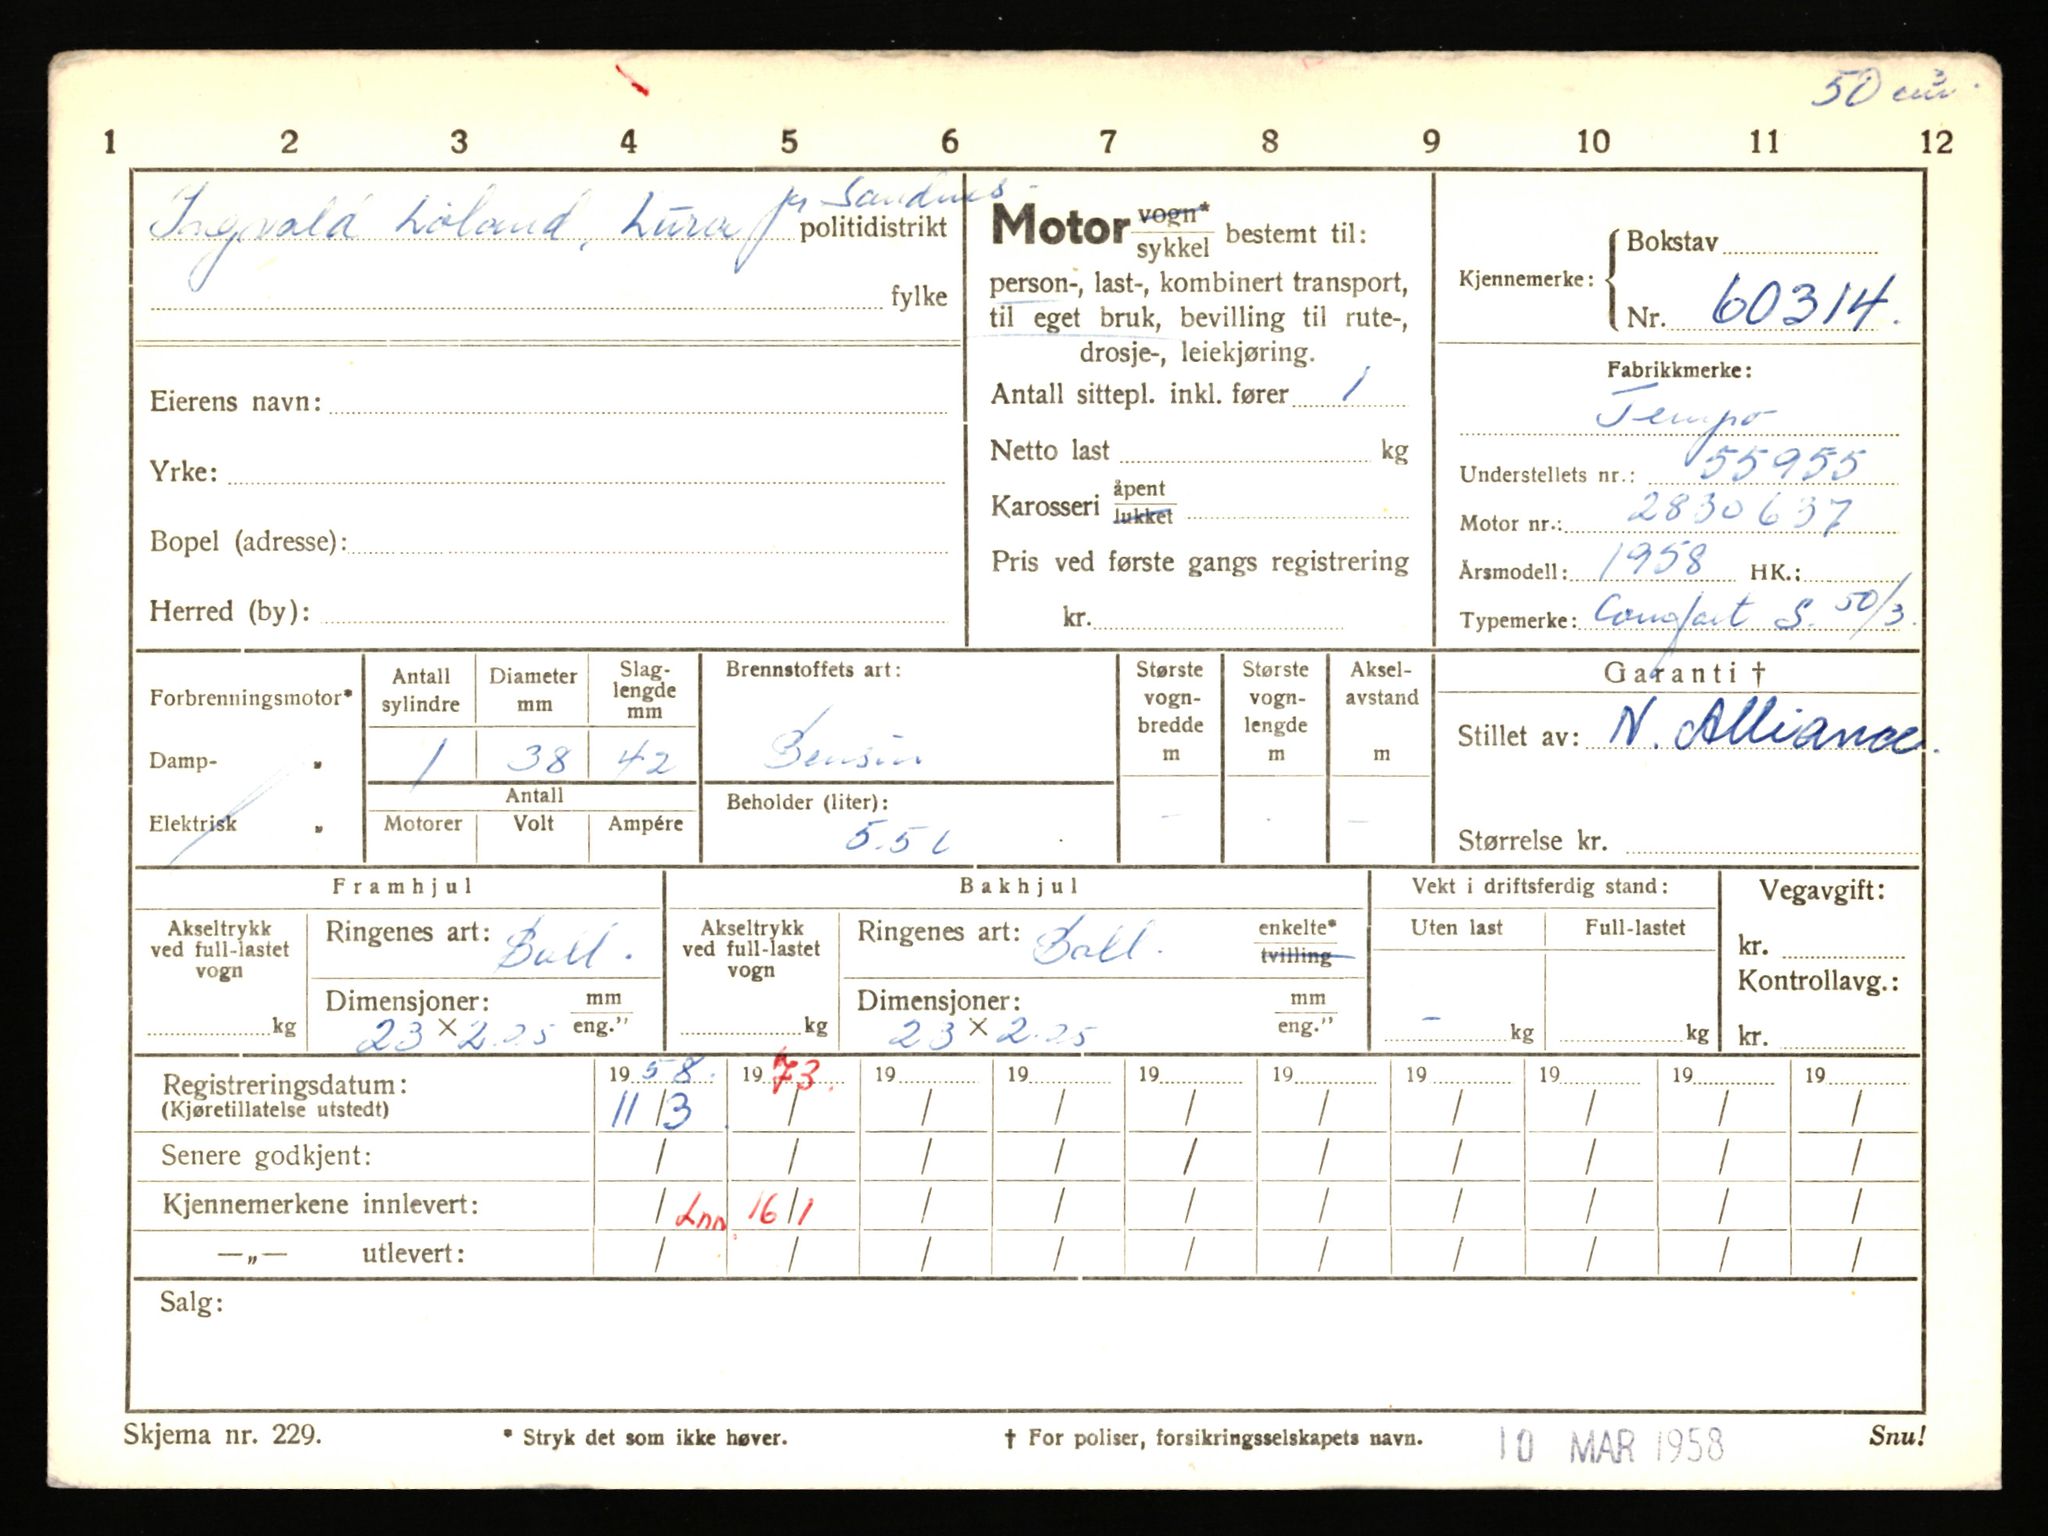 50 cm³.
1 2 3 4 5 6 7 8 9 10 11 12
Ingvald Löland, Lura pr Sandnes. politidistrikt
fylke
Eierens navn:
Yrke:
Bopel (adresse):
Herred (by):
Motor vogn* sykkel bestemt til:
person-, last-, kombinert transport,
til eget bruk, bevilling til rute-,
drosje-, leiekjøring.
Antall sittepl. inkl. fører 1
Netto last kg
Karosseri åpent lukket
Pris ved første gangs registrering
kr.
Kjennemerke: Bokstav
Nr. 60314.
Fabrikkmerke:
Tempo
Understellets nr.: 55955
Motor nr.: 2830637
Årsmodell: 1958 HK.:
Typemerke: Comfort S. 50/3.
Forbrenningsmotor*
Damp- "
Elektrisk "
Antall sylindre
Diameter mm
Slag- lengde mm
1 38 42
Antall
Motorer Volt Ampére
Brennstoffets art:
Bensin
Beholder (liter):
5.5 l
Største vogn- bredde m
Største vogn- lengde m
Aksel- avstand m
- - -
Garanti †
Stillet av: N. Alliance.
Størrelse kr.
Framhjul
Akseltrykk ved full-lastet vogn
kg
Ringenes art: Ball.
Dimensjoner: mm eng."
23 × 2.25
Bakhjul
Akseltrykk ved full-lastet vogn
kg
Ringenes art: Ball. enkelte* tvilling
Dimensjoner: mm eng."
23 × 2.25
Vekt i driftsferdig stand:
Uten last Full-lastet
- kg kg
Vegavgift:
kr.
Kontrollavg.:
kr.
Registreringsdatum: 1958. 1973. 19 19 19 19 19 19 19 19
(Kjøretillatelse utstedt) 11/3 / / / / / / / / /
Senere godkjent: / / / / / / / / / /
Kjennemerkene innlevert: / Inn. 16/1 / / / / / / / /
—„— utlevert: / / / / / / / / / /
Salg:
Skjema nr. 229. * Stryk det som ikke høver. † For poliser, forsikringsselskapets navn. 10 MAR 1958 Snu!